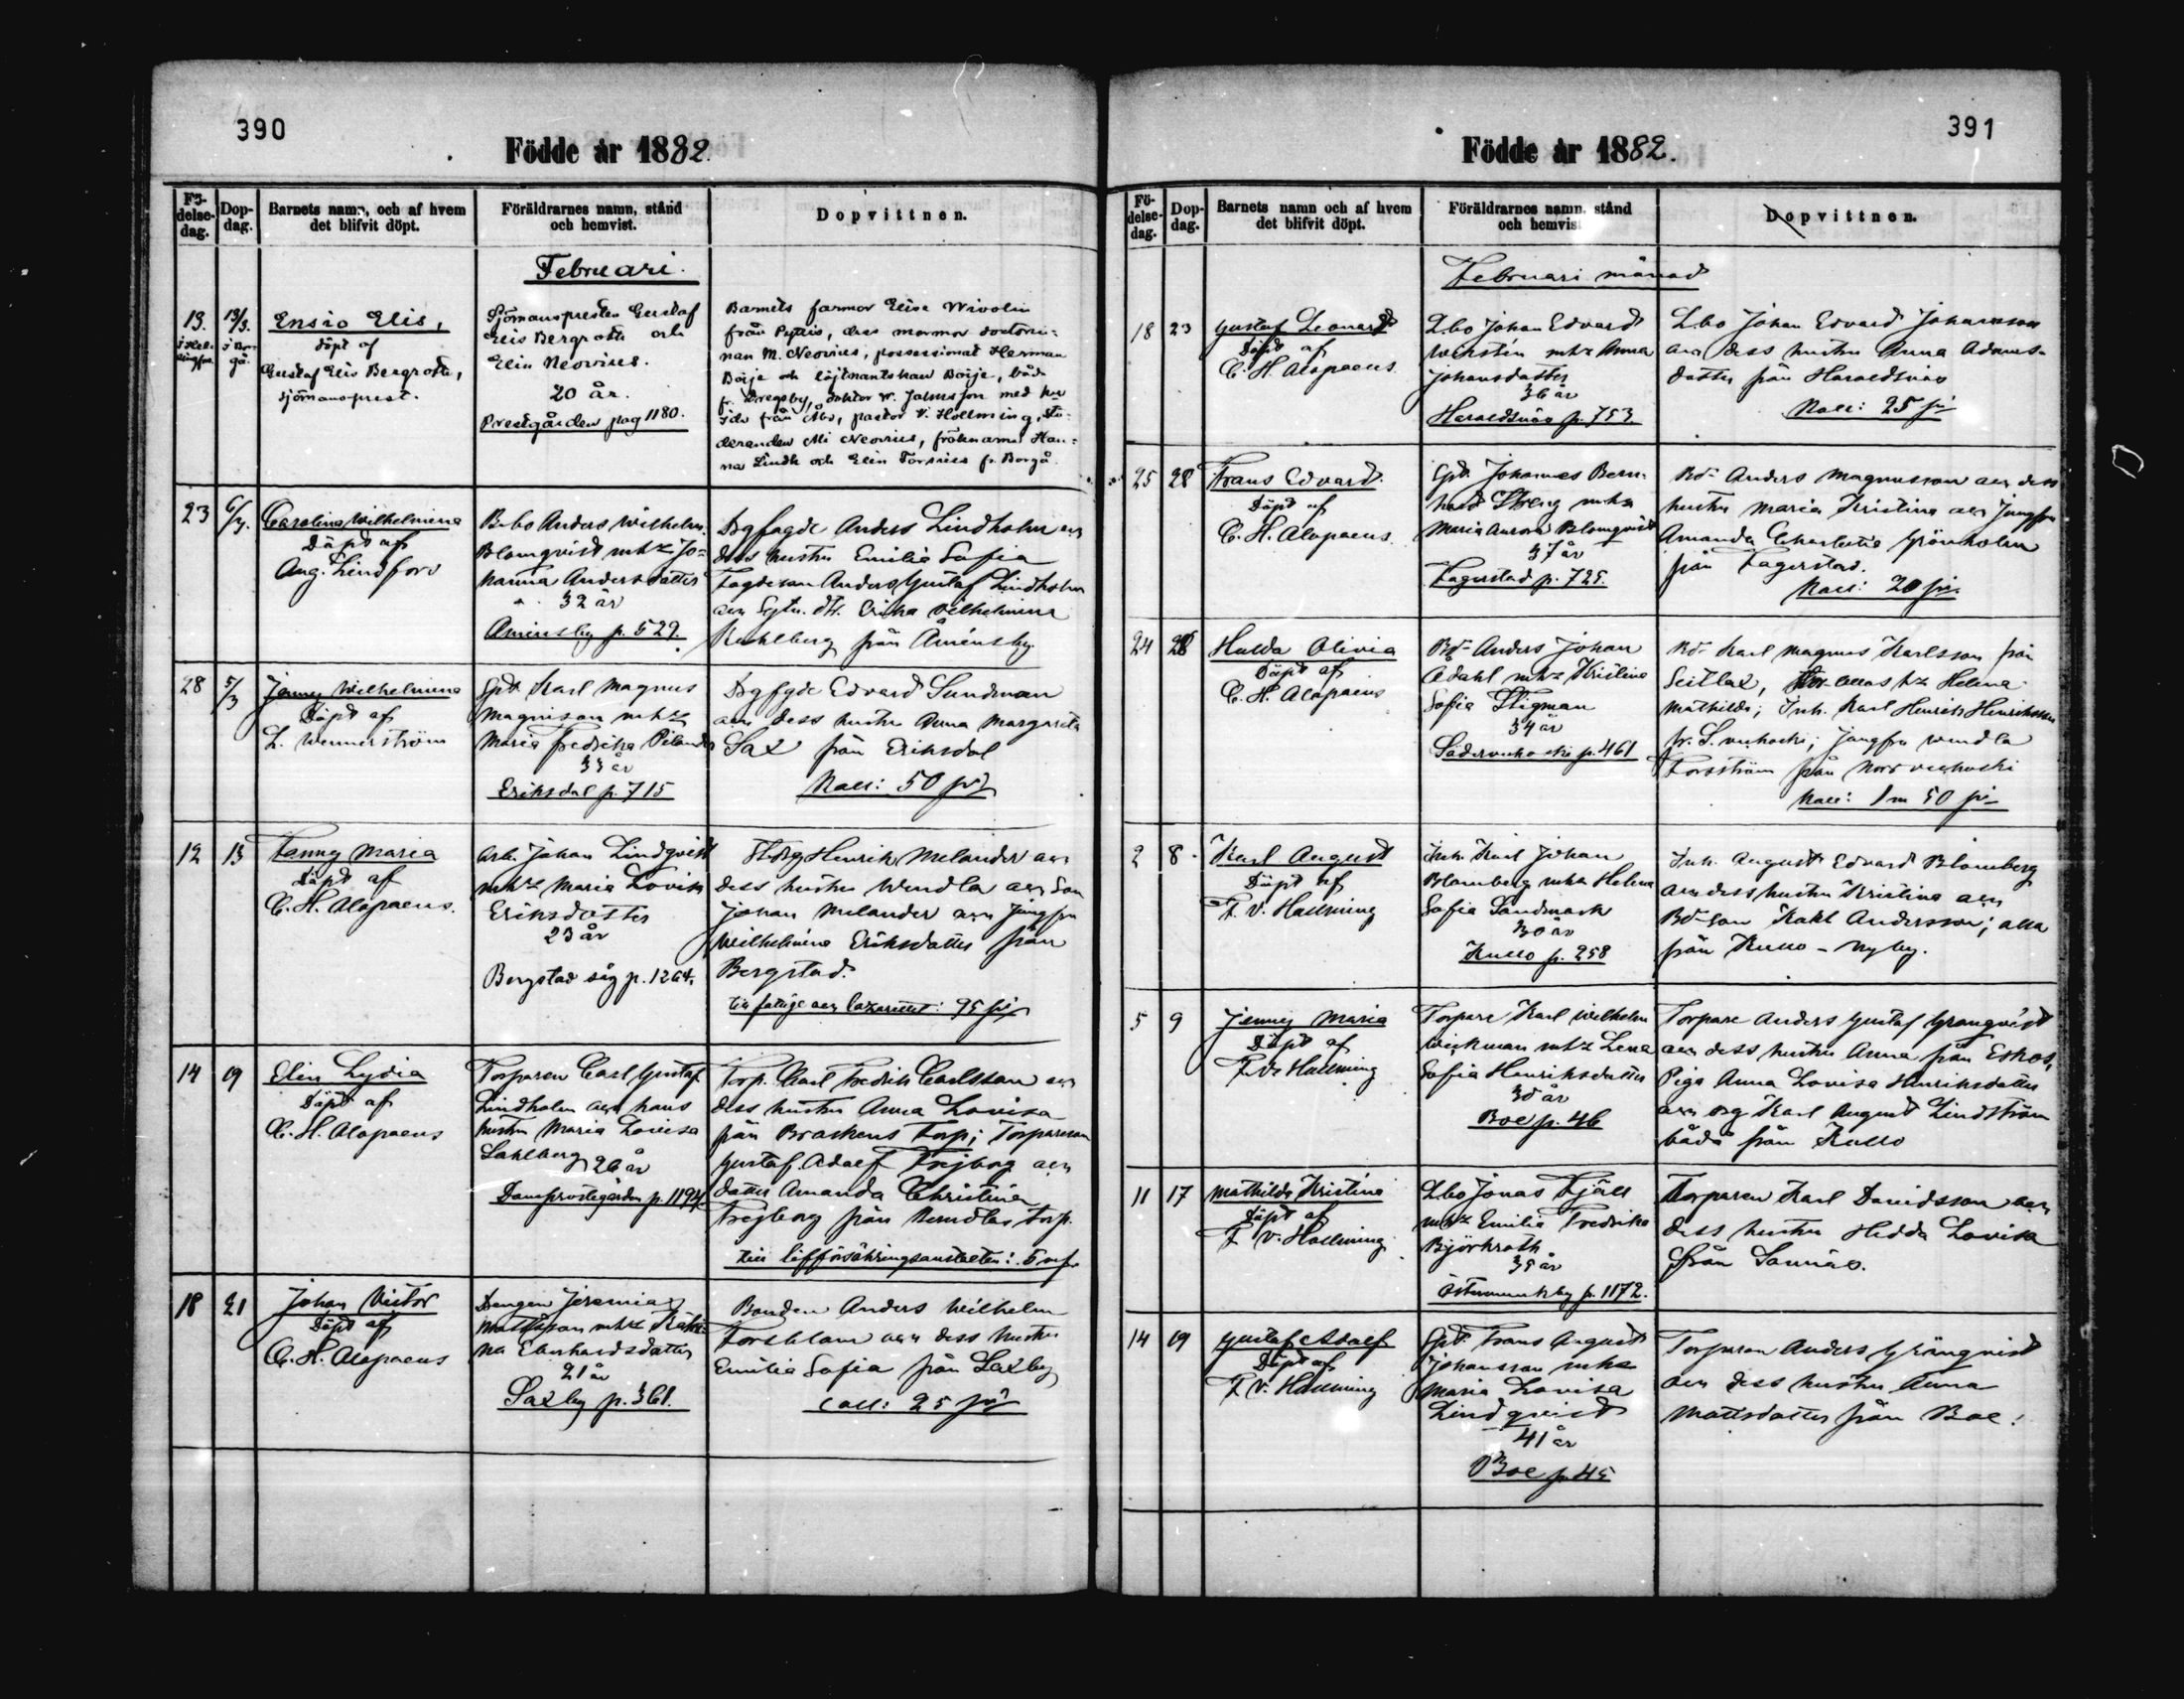 390
Födde år 1882.
Fö-
delse-
dag.
Dop-
dag.
Barnets namn, och af hvem
det blifvit döpt.
Föräldrarnes namn, stånd
och hemvist.
Dopvittnen.
Februari.
13.
i Hel-
singfors.
13/3.
i Bor-
gå.
Ensio Elis,
döpt af
Gustaf Elis Bergroth,
sjömansprest.
Sjömanspresten Gustaf
Elis Bergroth och
Elin Neovius.
20 år.
Prestgården pag 1180.
Barnets farmor Elise Wivolin
från Pyttis, dess mormor doctorin-
nan M. Neovius, possessionat Herman
Börje och löjtnantskan Börje, båda
fr. doktor W. med fru
Ida från Åbo, pastor V. Hollming, stu-
deranden Mi Neovius, fröknarna Han-
na Lindh och Elin Forsius fr. Borgå.
23
6/3.
Carolina Wilhelmina
Döpt af
Aug. Lindfors
Bbo Anders Wilhelm
Blomqvist mhz Jo-
hanna Andersdotter
32 år
Aminsby p. 529.
Dgfogde Anders Lindholm och
dess hustru Emilia Sofia
Fogdeson Anders Gustaf Lindholm
och dtr. Erika Vilhelmina
Kuhlberg från Åminsby.
28
5/3
Jenny Wilhelmina
Döpt af
L. Wennerström
Gpd. Karl Magnus
Magnison mhz
Maria Fredrika Pelander
33 år
Eriksdal p. 715
Dgfgde Edvard Sundman
och dess hustru Anna Margareta
Sax från Eriksdal
Koll: 50 pi
12
13
Fanny Maria
Döpt af
C. H. Alopaeus.
Arb. Johan Lindqvist
mhz Maria Lovisa
Eriksdotter
23 år
Bergstad såg p. 1264.
Henrik Melander och
dess hustru Wendla och Son
Johan Melander och Jungfru
Wilhelmina Eriksdotter från
Bergstad.
till fattige och lazarettet: 95 pi
14
19
Elin Lydia
Döpt af
C. H. Alopaeus
Torparen Carl Gustaf
Lindholm och hans
hustru Maria Lovisa
Sahlberg 26 år
Domprostegården p. 1194
Torp. Karl Fredrik Carlsson och
dess hustru Anna Lovisa
från Braskens Torp; Torpareson
Gustaf Adolf Frejborg och
dotter Amanda Christina
Frejborg från torp.
till lifförsäkringsanstalten: 5 mf.
18
21
Johan Victor
Döpt af
C. H. Alopaeus
Drengen Jeremias
Mattsson mhz Katri-
na Eberhardsdotter
21 år
Saxby p. 361.
Bonden Anders Wilhelm
Forsblom och dess hustru
Emilia Sofia från Saxby
coll: 25 pi
391
Födde år 1882.
Fö-
delse-
dag.
Dop-
dag.
Barnets namn och af hvem
det blifvit döpt.
Föräldrarnes namn, stånd
och hemvist
Dopvittnen.
Februari månad
18
23
Gustaf Leonard
Döpt af
C. H. Alopaeus.
Lbo Johan Edvard
mhz Anna
Johansdotter
36 år
Haraldsnäs p. 753.
Lbo Johan Edvard Johansson
och dess hustru Anna Adams-
dotter från Haraldsnäs
Koll: 25 pi
25
28
Frans Edvard.
Döpt af
C. H. Alopaeus.
Gpd. Johannes Bern-
hard mhz
Maria Aurora Blomqvist
37 år
Fagerstad p. 725.
Bd. Anders Magnusson och dess
hustru Maria Kristina och Jungfru
Amanda Charlotta Grönholm
från Fagerstad.
Koll: 20 pi.
24
28
Hulda Olivia
Döpt af
C. H. Alopaeus
Bd. Anders Johan
Ådahl mhz Kristina
Sofia Stigman
34 år
Söderveckoski p. 461
Bd. Karl Magnus Karlsson från
Seitlax, hz Helena
Mathilda; Inh. Karl Henrik Henriksson
fr. S. veckoski; Jungfru Wendla
Forsström från Norrveckoski
Koll: 1 m 50 pi
2
8
Karl August
Döpt af
F. V. Hallming
Inh. Karl Johan
Blomberg mhz Helena
Sofia Sandmark
30 år
Kullo p. 258
Inh. August Edvard Blomberg
och dess hustru Kristina och
Bd-son Karl Andersson; alla
från Kullo-nyby.
5
9
Jenny Maria
Döpt af
F. V. Hallming
Torpare Karl Wilhelm
Wickman mhz Lena
Sofia Henriksdotter
30 år
Boe p. 46
Torpare Anders Gustaf Granqvist
och dess hustru Anna från
Piga Anna Lovisa Henriksdotter
och dg Karl August Lindström
båda från Kullo
11
17
Mathilda Kristina
Döpt af
F. V. Hallming
Lbo Jonas Fjäll
mhz Emilia Fredrika
Björkroth
35 år
Östermunkby p. 1172.
Torparen Karl Davidsson och
dess hustru Hedda Lovisa
från Sannäs.
14
19
Gustaf Adolf
Döpt af
F. V. Hallming
Gpd. Frans August
Johansson mhz
Maria Lovisa
Lindqvist
41 år
Boe p. 45
Torparen Anders Grönqvist
och dess hustru Anna
Mattsdotter från Boe.